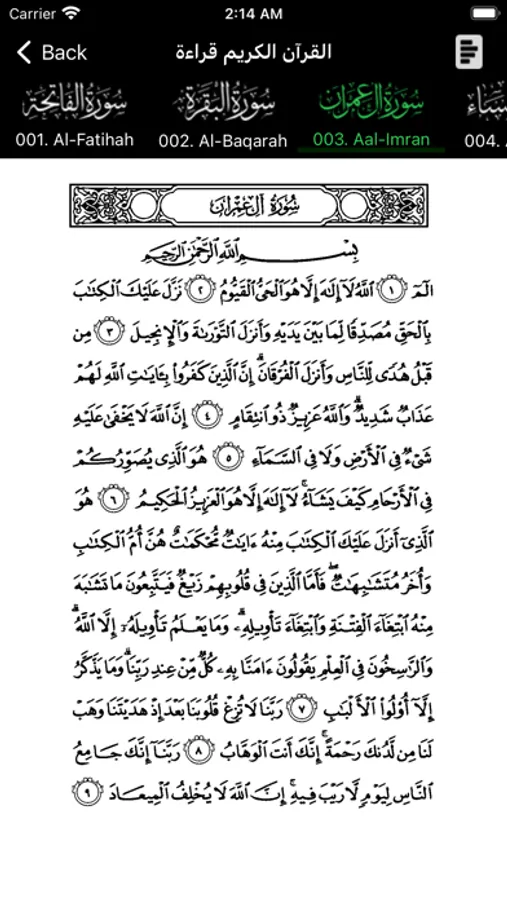 Carrier 2:14 AM
Back القرآن الكريم قراءة
سورة الفاتحة سورة البقرة سورة آل عمران
001. Al-Fatihah 002. Al-Baqarah 003. Aal-Imran 004.
سُورَةُ آلِ عِمْرَانَ
بِسْمِ ٱللَّهِ ٱلرَّحْمَٰنِ ٱلرَّحِيمِ
الٓمٓ ١ ٱللَّهُ لَآ إِلَٰهَ إِلَّا هُوَ ٱلْحَىُّ ٱلْقَيُّومُ ٢ نَزَّلَ عَلَيْكَ ٱلْكِتَٰبَ
بِٱلْحَقِّ مُصَدِّقًا لِّمَا بَيْنَ يَدَيْهِ وَأَنزَلَ ٱلتَّوْرَىٰةَ وَٱلْإِنجِيلَ ٣ مِن
قَبْلُ هُدًى لِّلنَّاسِ وَأَنزَلَ ٱلْفُرْقَانَ ۗ إِنَّ ٱلَّذِينَ كَفَرُوا۟ بِـَٔايَٰتِ ٱللَّهِ لَهُمْ
عَذَابٌ شَدِيدٌ ۗ وَٱللَّهُ عَزِيزٌ ذُو ٱنتِقَامٍ ٤ إِنَّ ٱللَّهَ لَا يَخْفَىٰ عَلَيْهِ
شَىْءٌ فِى ٱلْأَرْضِ وَلَا فِى ٱلسَّمَآءِ ٥ هُوَ ٱلَّذِى يُصَوِّرُكُمْ
فِى ٱلْأَرْحَامِ كَيْفَ يَشَآءُ ۚ لَآ إِلَٰهَ إِلَّا هُوَ ٱلْعَزِيزُ ٱلْحَكِيمُ ٦ هُوَ
ٱلَّذِىٓ أَنزَلَ عَلَيْكَ ٱلْكِتَٰبَ مِنْهُ ءَايَٰتٌ مُّحْكَمَٰتٌ هُنَّ أُمُّ ٱلْكِتَٰبِ
وَأُخَرُ مُتَشَٰبِهَٰتٌ ۖ فَأَمَّا ٱلَّذِينَ فِى قُلُوبِهِمْ زَيْغٌ فَيَتَّبِعُونَ مَا تَشَٰبَهَ
مِنْهُ ٱبْتِغَآءَ ٱلْفِتْنَةِ وَٱبْتِغَآءَ تَأْوِيلِهِۦ ۗ وَمَا يَعْلَمُ تَأْوِيلَهُۥٓ إِلَّا ٱللَّهُ ۗ
وَٱلرَّٰسِخُونَ فِى ٱلْعِلْمِ يَقُولُونَ ءَامَنَّا بِهِۦ كُلٌّ مِّنْ عِندِ رَبِّنَا ۗ وَمَا يَذَّكَّرُ
إِلَّآ أُو۟لُوا۟ ٱلْأَلْبَٰبِ ٧ رَبَّنَا لَا تُزِغْ قُلُوبَنَا بَعْدَ إِذْ هَدَيْتَنَا وَهَبْ
لَنَا مِن لَّدُنكَ رَحْمَةً ۚ إِنَّكَ أَنتَ ٱلْوَهَّابُ ٨ رَبَّنَآ إِنَّكَ جَامِعُ
ٱلنَّاسِ لِيَوْمٍ لَّا رَيْبَ فِيهِ ۚ إِنَّ ٱللَّهَ لَا يُخْلِفُ ٱلْمِيعَادَ ٩